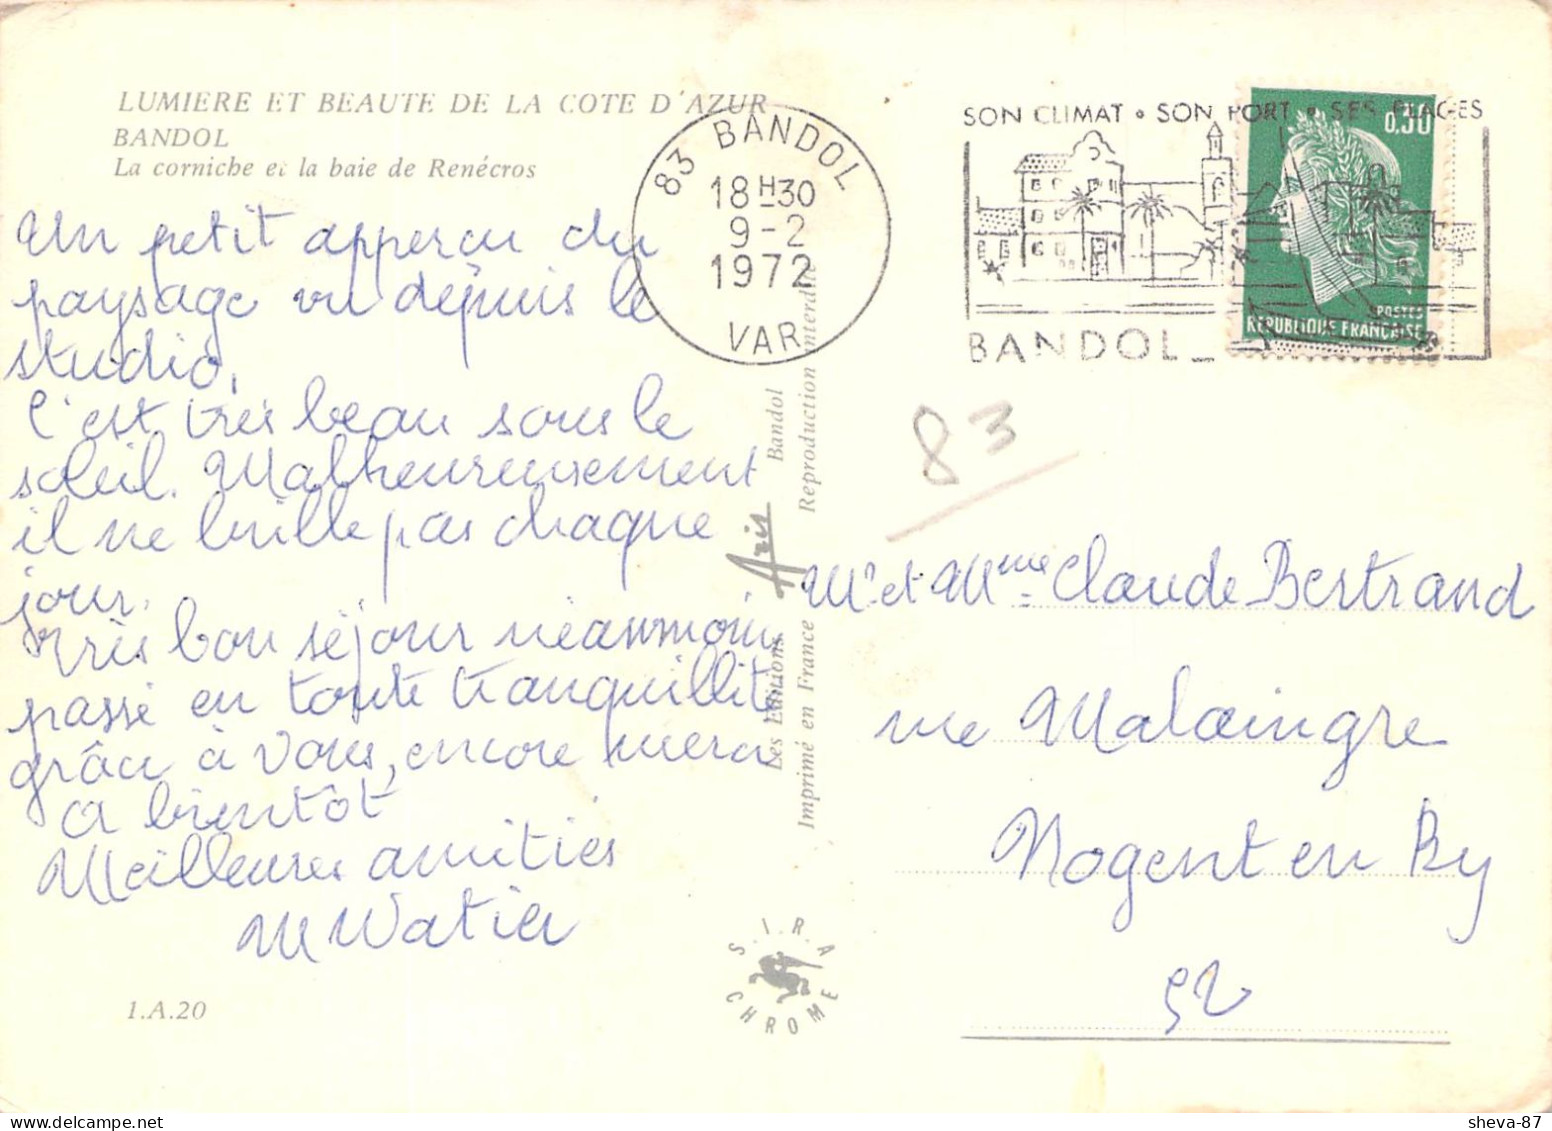 LUMIERE ET BEAUTE DE LA COTE D'AZUR
BANDOL
La corniche et la baie de Renécros
Un petit apperçu du
paysage vu dépuis le
studio.
C'est très beau sous le
soleil. Malheureusement
il ne brille pas chaque
jour.
Très bon séjour néanmoins
passé en toute tranquillité
grâce à vous, encore merci
A bientôt
Meilleures amitiés
M Watier
1.A.20
83 BANDOL
18H30
9-2
1972
VAR
SON CLIMAT • SON PORT • SES PLAGES
BANDOL
0,30
POSTES
REPUBLIQUE FRANÇAISE
83
Les Editions Aris Bandol
Imprimé en France Reproduction interdite
S.I.R.A
CHROME
Mr et Mme Claude Bertrand
rue Malaingre
Nogent en By
52
sheva-87